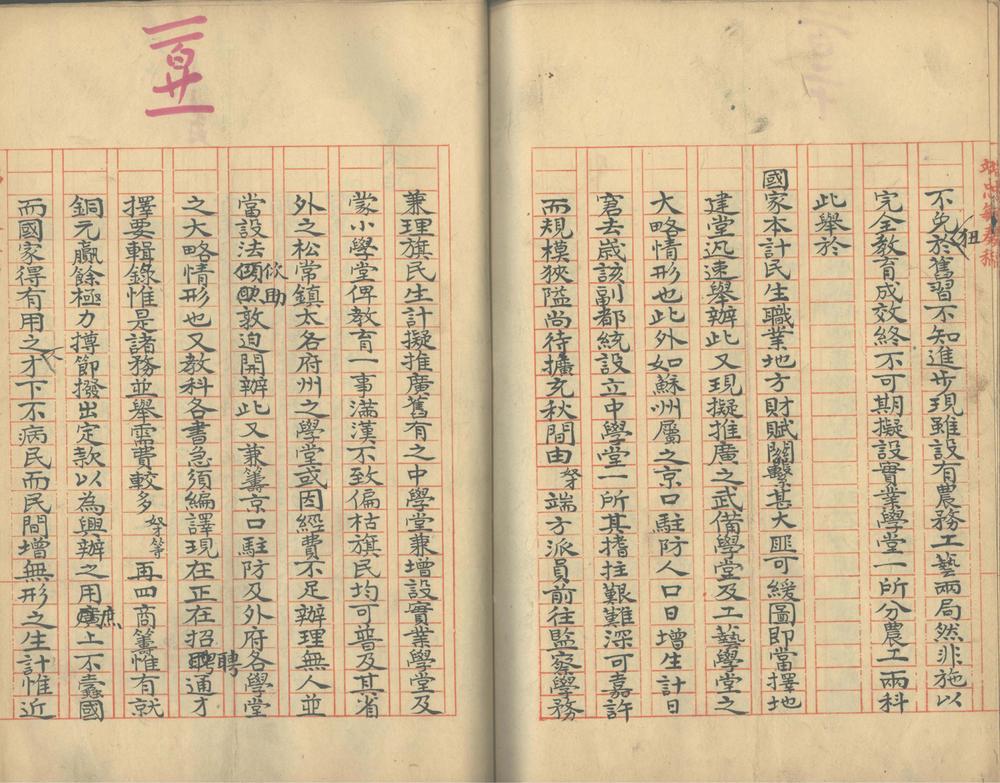 不免狃於舊習不知進步現雖設有農務工藝兩局然非施以
完全教育成效終不可期擬設實業學堂一所分農工兩科
此舉於
國家本計民生職業地方財賦關繫甚大匪可緩圖即當擇地
建堂迅速舉辦此又現擬推廣之武備學堂及工藝學堂之
大略情形也此外如蘇州屬之京口駐防人口日增生計日
窘去歲該副都統設立中學堂一所其搘拄艱難深可嘉許
而規模狹隘尚待擴充秋間由奴才端方派員前往監察學務
一百廿一
兼理旗民生計擬推廣舊有之中學堂兼增設實業學堂及
蒙小學堂俾教育一事滿漢不致偏枯旗民均可普及其省
外之松常鎮太各府州之學堂或因經費不足辦理無人並
當設法佽助敦迫開辦此又兼籌京口駐防及外府各學堂
之大略情形也又教科各書急須編譯現在正在招聘通才
擇要輯錄惟是諸務並舉需費較多奴才等再四商籌惟有就
銅元贏餘極力撙節撥出定款以為興辦之用庶上不蠹國
而國家得有用之才下不病民而民間增無形之生計惟近